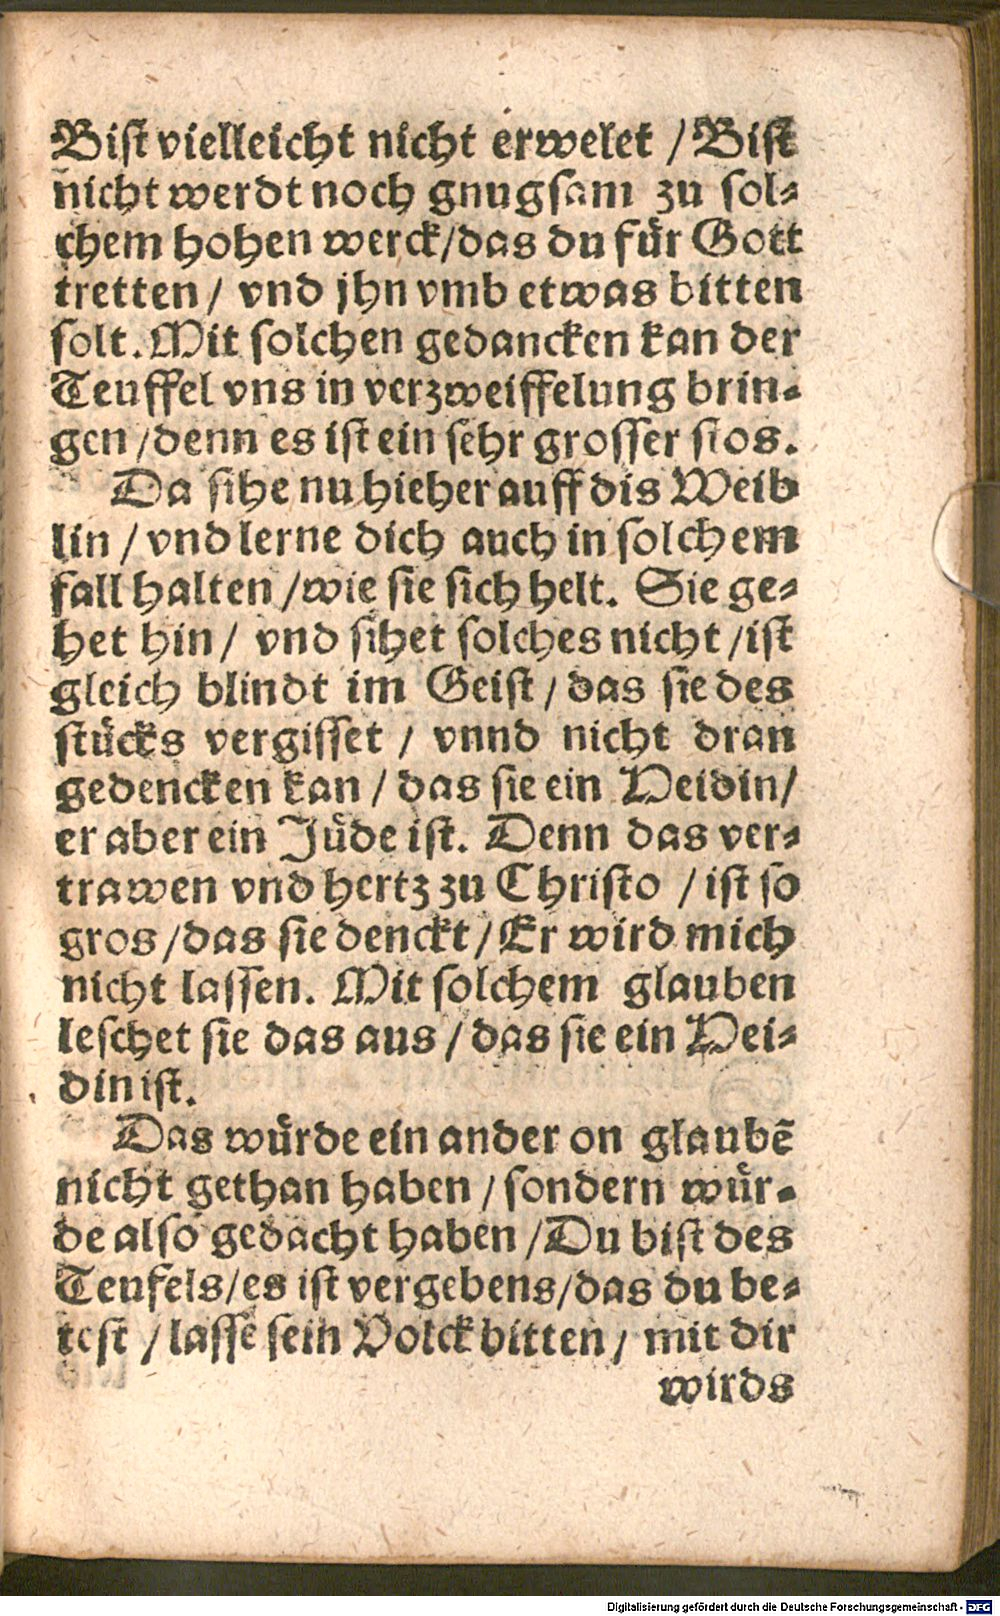 Bist vielleicht nicht erwelet / Bist
nicht werdt noch gnugsam zu sol⸗
chem hohen werck / das du für Gott
tretten / vnd jhn vmb etwas bitten
solt. Mit solchen gedancken kan der
Teuffel vns in verzweiffelung brin⸗
gen / denn es ist ein sehr grosser stos.
Da sihe nu hieher auff dis Weib
lin / vnd lerne dich auch in solchem
fall halten / wie sie sich helt. Sie ge⸗
het hin / vnd sihet solches nicht / ist
gleich blindt im Geist / das sie des
stücks vergisset / vnnd nicht dran
gedencken kan / das sie ein Heidin /
er aber ein Jüde ist. Denn das ver⸗
trawen vnd hertz zu Christo / ist so
gros / das sie denckt / Er wird mich
nicht lassen. Mit solchem glauben
leschet sie das aus / das sie ein Hei⸗
din ist.
Das würde ein ander on glaubē
nicht gethan haben / sondern wür⸗
de also gedacht haben / Du bist des
Teufels / es ist vergebens / das du be⸗
test / lasse sein Volck bitten / mit dir
wirds
Digitalisierung gefördert durch die Deutsche Forschungsgemeinschaft - DFG